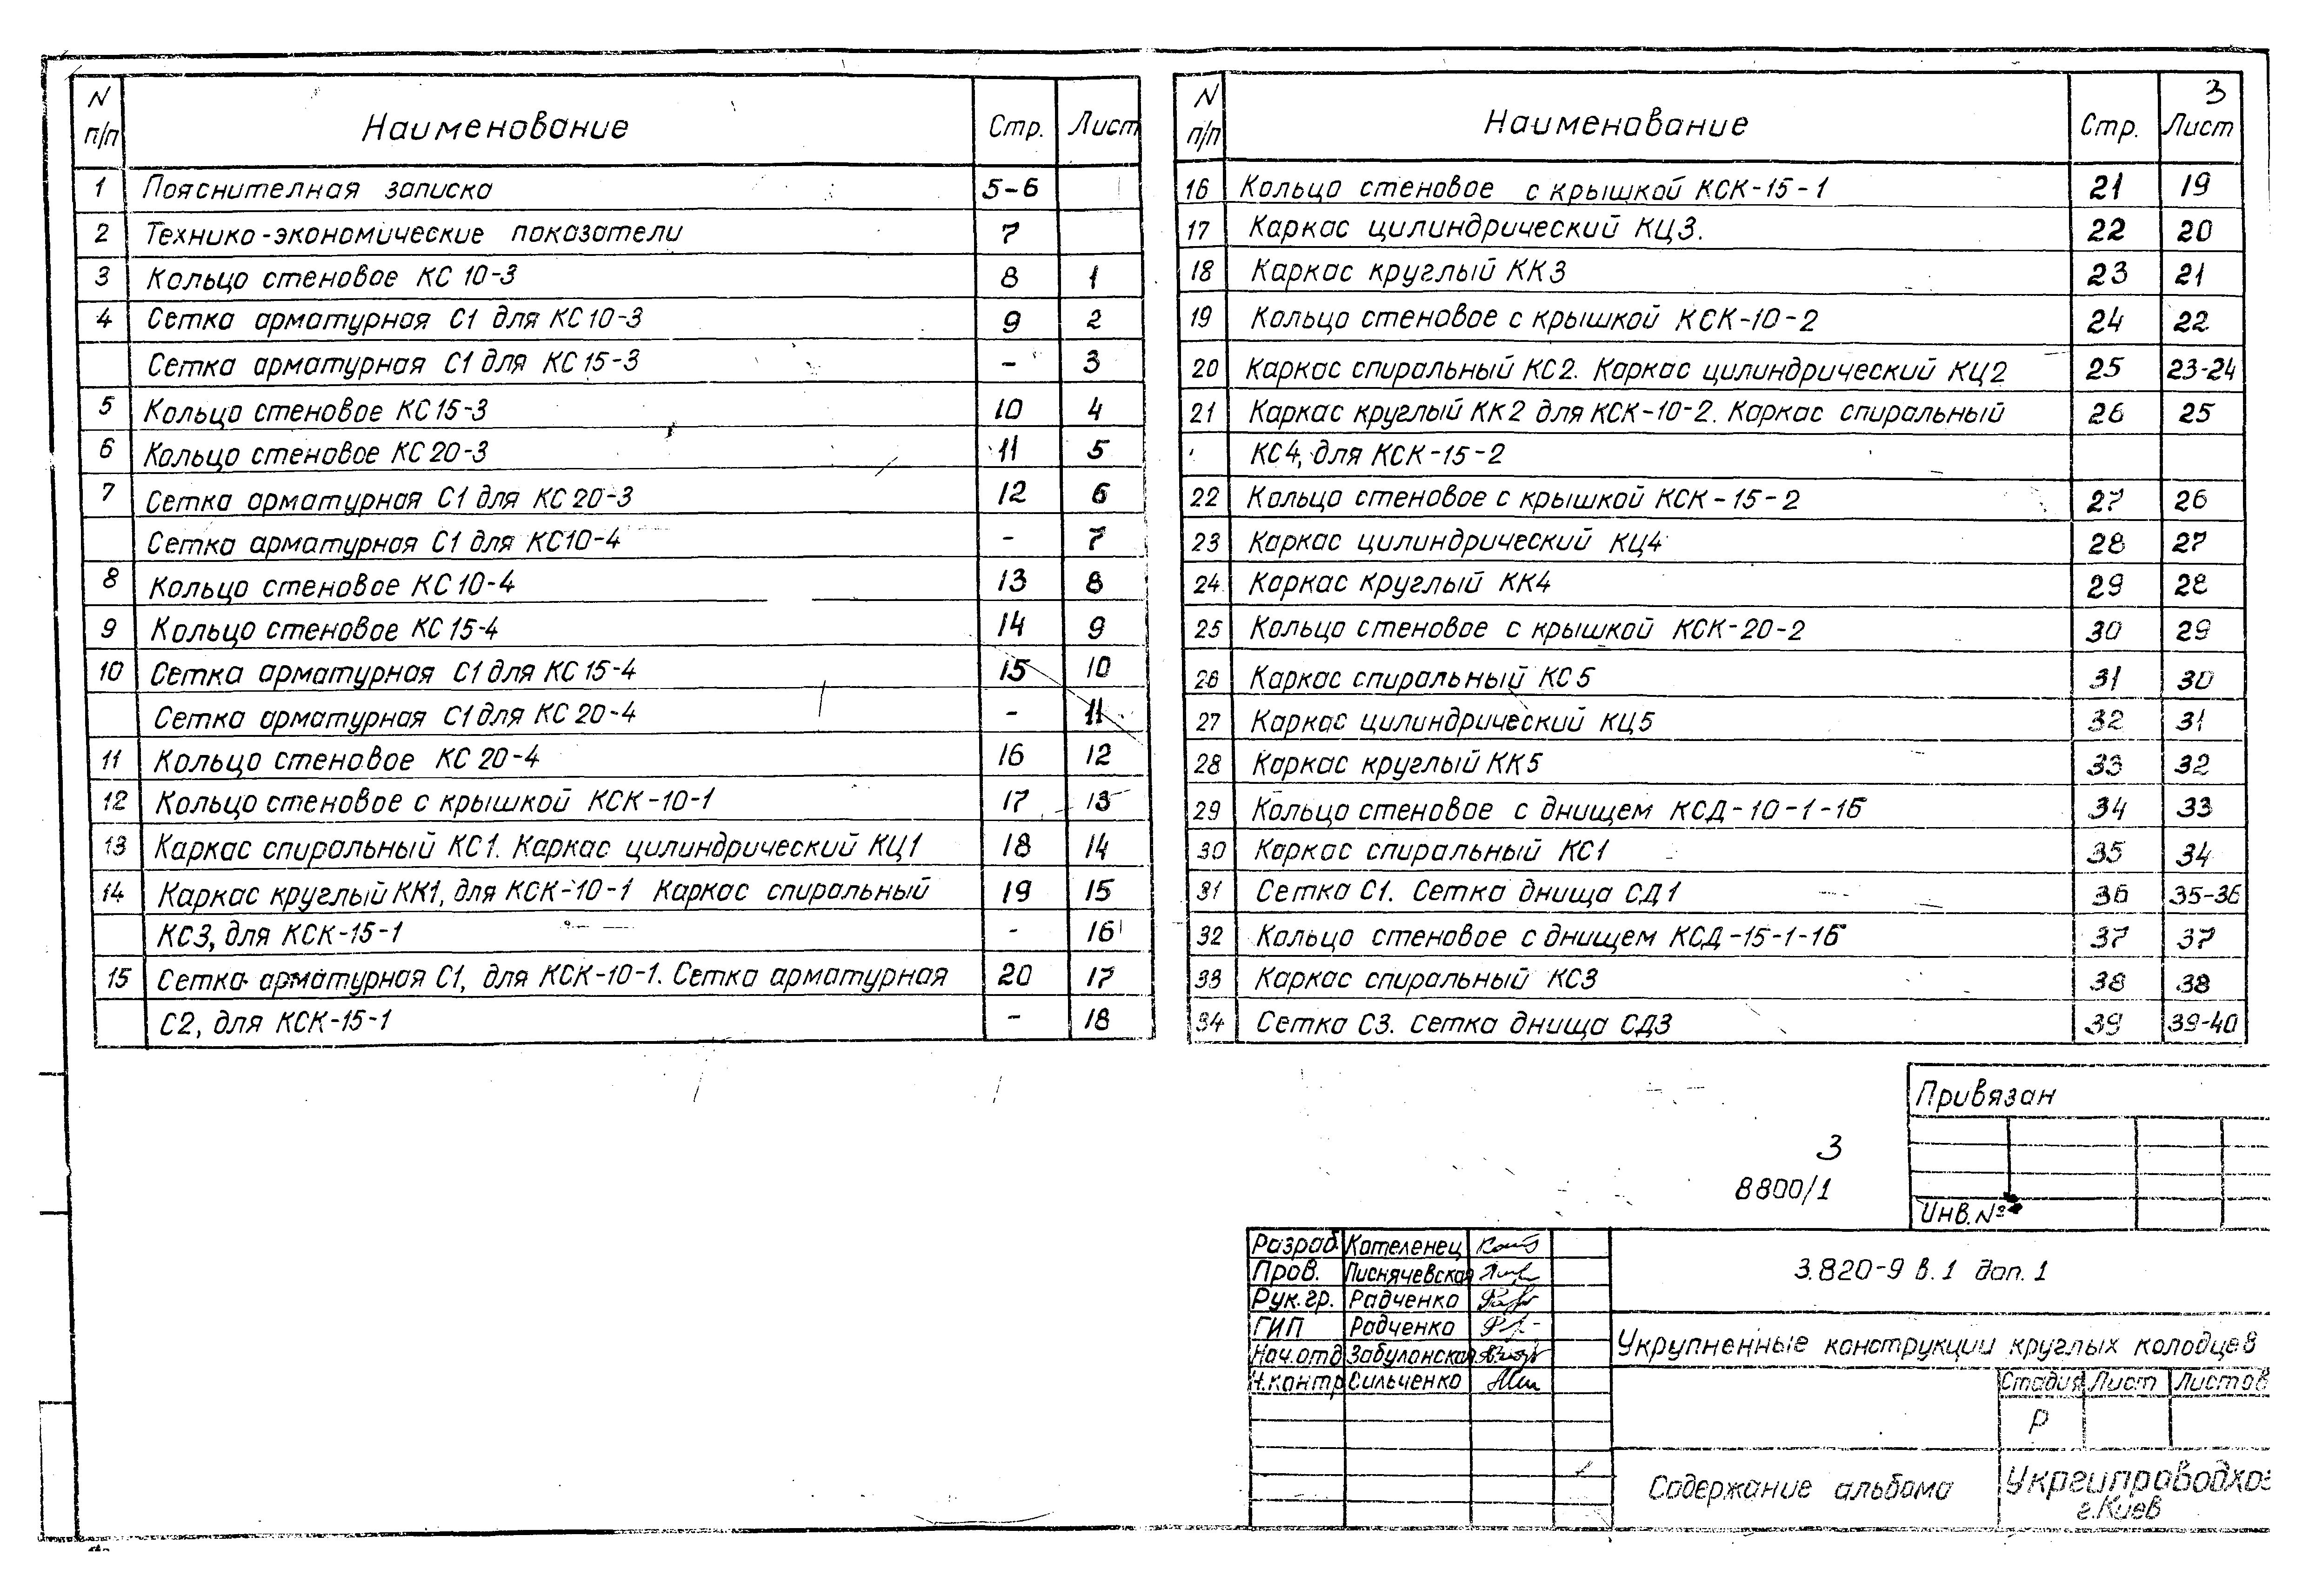 N п/п Наименование Стр. Лист
1 Пояснителная записка 5-6
2 Технико-экономические показатели 7
3 Кольцо стеновое КС 10-3 8 1
4 Сетка арматурная С1 для КС 10-3 9 2
Сетка арматурная С1 для КС 15-3 - 3
5 Кольцо стеновое КС 15-3 10 4
6 Кольцо стеновое КС 20-3 11 5
7 Сетка арматурная С1 для КС 20-3 12 6
Сетка арматурная С1 для КС10-4 - 7
8 Кольцо стеновое КС 10-4 13 8
9 Кольцо стеновое КС 15-4 14 9
10 Сетка арматурная С1 для КС 15-4 15 10
Сетка арматурная С1 для КС 20-4 - 11
11 Кольцо стеновое КС 20-4 16 12
12 Кольцо стеновое с крышкой КСК-10-1 17 13
13 Каркас спиральный КС1. Каркас цилиндрический КЦ1 18 14
14 Каркас круглый КК1, для КСК-10-1 Каркас спиральный 19 15
КС3, для КСК-15-1 - 16
15 Сетка арматурная С1, для КСК-10-1. Сетка арматурная 20 17
С2, для КСК-15-1 - 18
3
N п/п Наименование Стр. Лист
16 Кольцо стеновое с крышкой КСК-15-1 21 19
17 Каркас цилиндрический КЦ3. 22 20
18 Каркас круглый КК3 23 21
19 Кольцо стеновое с крышкой КСК-10-2 24 22
20 Каркас спиральный КС2. Каркас цилиндрический КЦ2 25 23-24
21 Каркас круглый КК2 для КСК-10-2. Каркас спиральный 26 25
КС4, для КСК-15-2
22 Кольцо стеновое с крышкой КСК-15-2 27 26
23 Каркас цилиндрический КЦ4 28 27
24 Каркас круглый КК4 29 28
25 Кольцо стеновое с крышкой КСК-20-2 30 29
26 Каркас спиральный КС5 31 30
27 Каркас цилиндрический КЦ5 32 31
28 Каркас круглый КК5 33 32
29 Кольцо стеновое с днищем КСД-10-1-1б 34 33
30 Каркас спиральный КС1 35 34
31 Сетка С1. Сетка днища СД1 36 35-36
32 Кольцо стеновое с днищем КСД-15-1-1б 37 37
33 Каркас спиральный КС3 38 38
34 Сетка С3. Сетка днища СД3 39 39-40
Привязан
Инв. №
3
8800/1
Разраб. Котеленец
Пров. Лиснячевская
Рук. гр. Радченко
ГИП Радченко
Нач. отд Забулонская
Н.контр Сильченко
3.820-9 в.1 доп.1
Укрупненные конструкции круглых колодцев
Стадия Лист Листов
Р
Содержание альбома
Укргипроводхоз
г.Киев